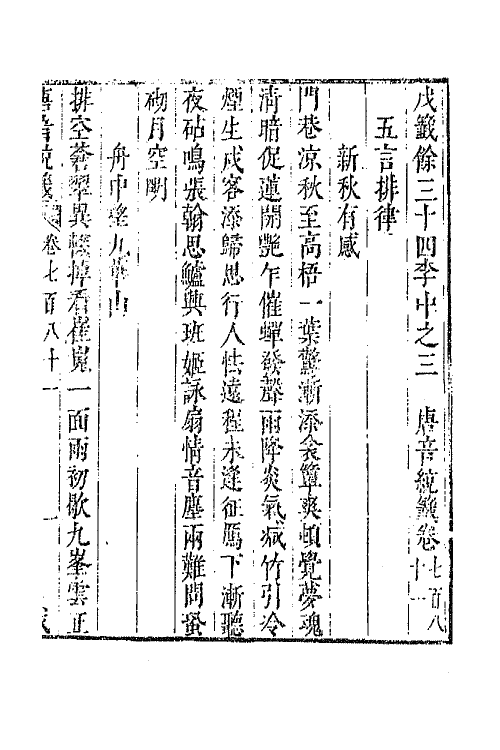 戊籖餘三十四李中之三　唐音統籖卷七百八十一
五言排律
新秋有感
門巷涼秋至高梧一葉驚漸添衾簟爽頓覺夢魂
清暗促蓮開艷乍催蟬發聲雨降炎氣减竹引冷
煙生戍客添歸思行人怯遠程未逢征鴈下漸聽
夜砧鳴張翰思鱸興班姬詠扇情音塵兩難問蛩
砌月空明
舟中望九華山
排空蒼翠異輟棹看崔嵬一面雨初歇九峯雲正
唐音統籖 卷七百八十一 一 戊